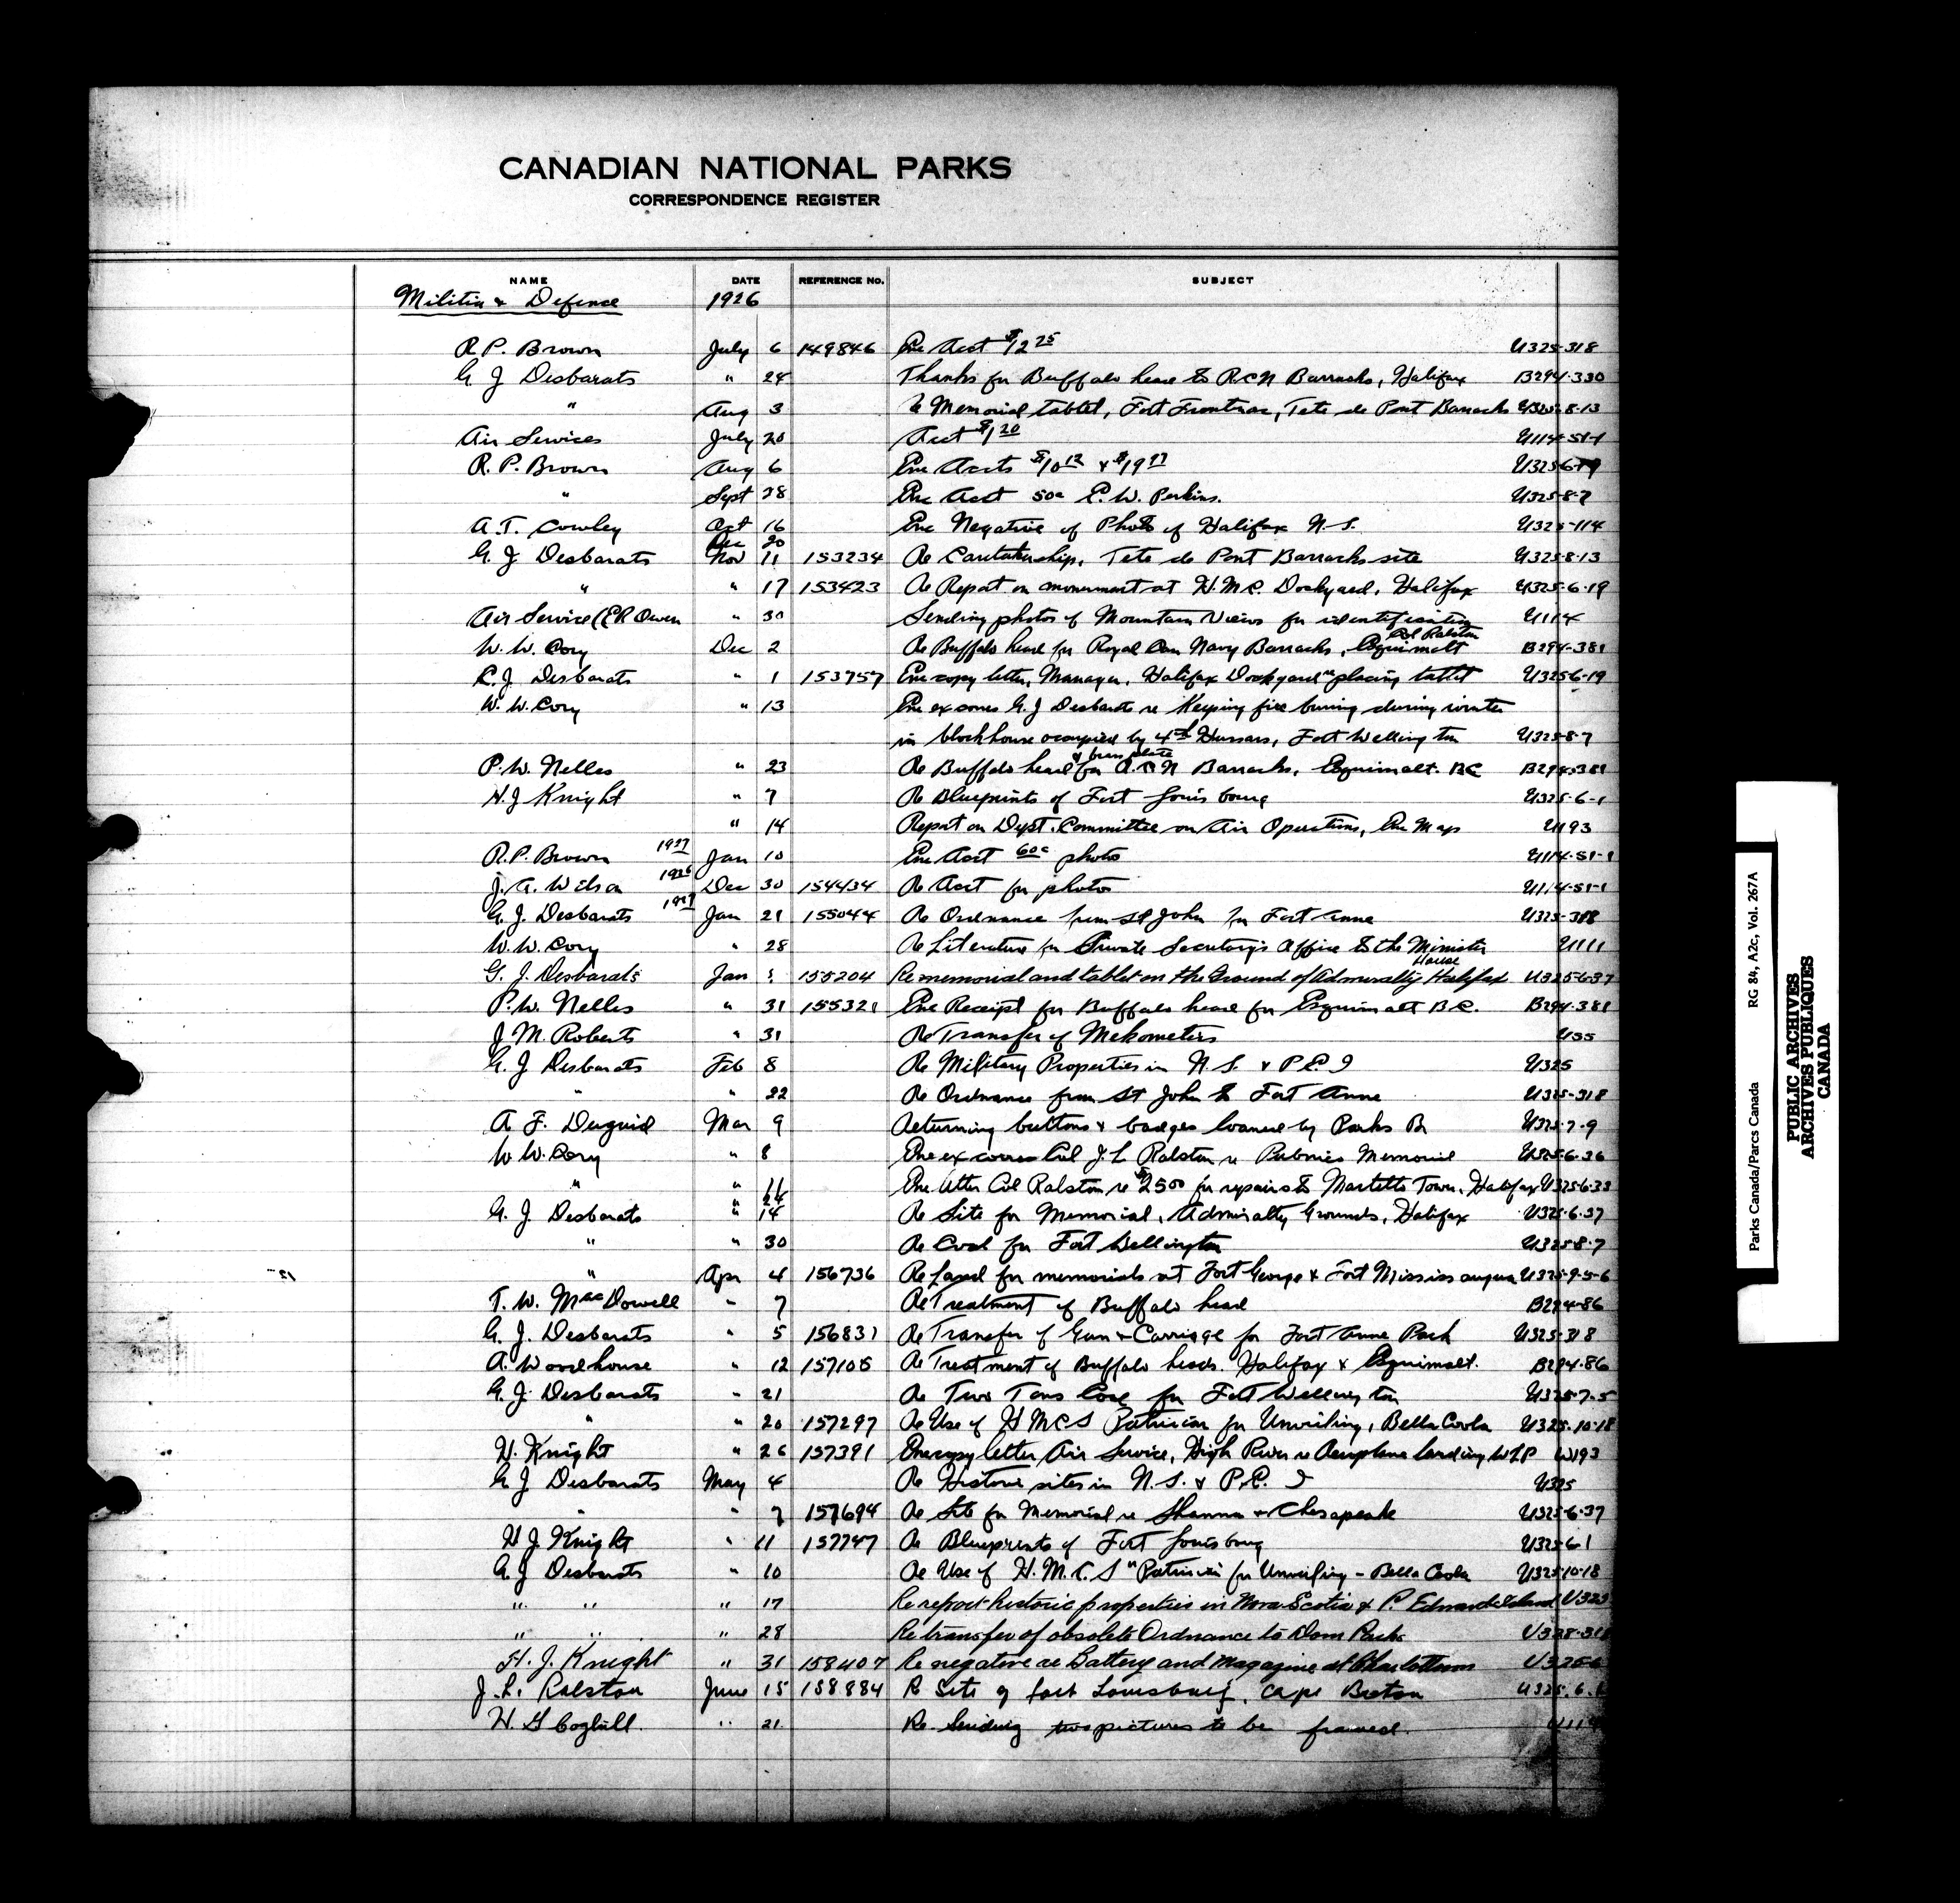 CANADIAN NATIONAL PARKS
CORRESPONDENCE REGISTER
NAME DATE REFERENCE No. SUBJECT
Militia & Defence 1926
R P. Brown July 6 149846 Enc Acct $12 25 U325-318
G J Desbarats " 24 Thanks for Buffalo head to R.C.N Barracks, Halifax B294-330
" Aug 3 Re Memorial tablet, Fort Frontenac, Tete de Pont Barracks U325-8-13
Air Services July 20 Acct $1 20 U114-51-1
R. P. Brown Aug 6 Enc Accts $10 12 & $19 77 U325-6-19
" Sept 28 Enc Acct 50c E. W. Perkins. U325-8-7
A. T. Cowley Oct 16 Enc Negative of Photo of Halifax N. S. U325-114
Dec 20
G. J Desbarats Nov 11 153234 Re Caretakership, Tete de Pont Barracks site U325-8-13
" " 17 153423 Re Report on monument at H. M. C. Dockyard, Halifax U325-6-19
Air Service (E R Owen " 30 Sending photos of Mountain Views for identification U114
Col Ralston
W. W. Cory Dec 2 Re Buffalo head for Royal Can Navy Barracks, Esquimalt B294-381
G. J. Desbarats " 1 153757 Enc copy letter, Manager, Halifax Dockyard re placing tablet U325-6-19
W. W. Cory " 13 Enc ex corres G. J Desbarats re Keeping fire burning during winter
in blockhouse occupied by 4th Hussars, Fort Wellington U325-8-7
& brass plate
P. W. Nelles " 23 Re Buffalo head for R. C N Barracks, Esquimalt. BC B294-381
H. J Knight " 7 Re Blueprints of Fort Louisbourg U325-6-1
" 14 Report on Dept. Committee on Air Operations, Enc Map U193
R. P. Brown 1927 Jan 10 Enc Acct 60c photo U114-51-1
J. A. Wilson 1926 Dec 30 154434 Re Acct for photos U114-51-1
G. J. Desbarats 1927 Jan 21 155044 Re Ordnance from St John for Fort Anne U325-318
W. W. Cory " 28 Re Literature for Private Secretary's Office to the Minister U111
House
G. J. Desbarats Jan 155204 Re memorial and tablet on the Ground of Admiralty Halifax U325-6-37
P. W. Nelles " 31 155321 Enc Receipt for Buffalo head for Esquimalt B.C. B294-381
J M. Roberts " 31 Re Transfer of Mekometers U55
G. J Desbarats Feb 8 Re Military Properties in N. S. & P E I U325
" " 22 Re Ordnance from St John to Fort Anne U325-318
A F. Duguid Mar 9 Returning buttons & badges loaned by Parks Br U325-7-9
W. W. Cory " 8 Enc ex corres Col J. L Ralston re Memorial U325-6-36
" " 11 Enc letter Col Ralston re $2500 for repairs to Martello Tower, Halifax U325-6-33
" 24
G. J Desbarats " 14 Re Site for Memorial, Admiralty Grounds, Halifax U325-6-37
" " 30 Re Coal for Fort Wellington U325-8-7
" Apr 4 156736 Re Land for memorials at Fort George & Fort Mississauga U325-9-5-6
T. W. MacDowell " 7 Re Treatment of Buffalo head B294-86
G. J. Desbarats " 5 156831 Re Transfer of Gun & Carriage for Fort Anne Park U325-318
A. Woodhouse " 12 157108 Re Treatment of Buffalo heads. Halifax & Esquimalt. B294-86
G. J. Desbarats " 21 Re Two Tons Coal for Fort Wellington U325-7-5
" " 20 157297 Re Use of H M C S Patrician for Unveiling, Bella Coola U325-10-18
H. Knight " 26 157391 Enc copy letter Air Service, High River re Aeroplane landing WLP W193
G J Desbarats May 4 Re Historic sites in N. S. & P. E. I U325
" " 7 157694 Re Site for Memorial re Shannon & Chesapeake U325-6-37
H J Knight " 11 157747 Re Blueprints of Fort Louisbourg U325-6-1
G. J Desbarats " 10 Re Use of H. M. C. S "Patrician" for Unveiling - Bella Coola U325-10-18
" " " 17 Re report historic properties in Nova Scotia & P. Edward Island U325
" " " 28 Re transfer of obsolete Ordnance to Dom Parks U325-318
H. J. Knight " 31 158407 Re negative re Battery and Magazine at Charlottetown U325-6
J. L. Ralston June 15 158884 Re Site of fort Louisburg, Cape Breton U325.6.1
H. G Coghill. " 21. Re. Sending two pictures to be framed. U114
Parks Canada/Parcs Canada RG 84, A2c, Vol. 267A
PUBLIC ARCHIVES
ARCHIVES PUBLIQUES
CANADA